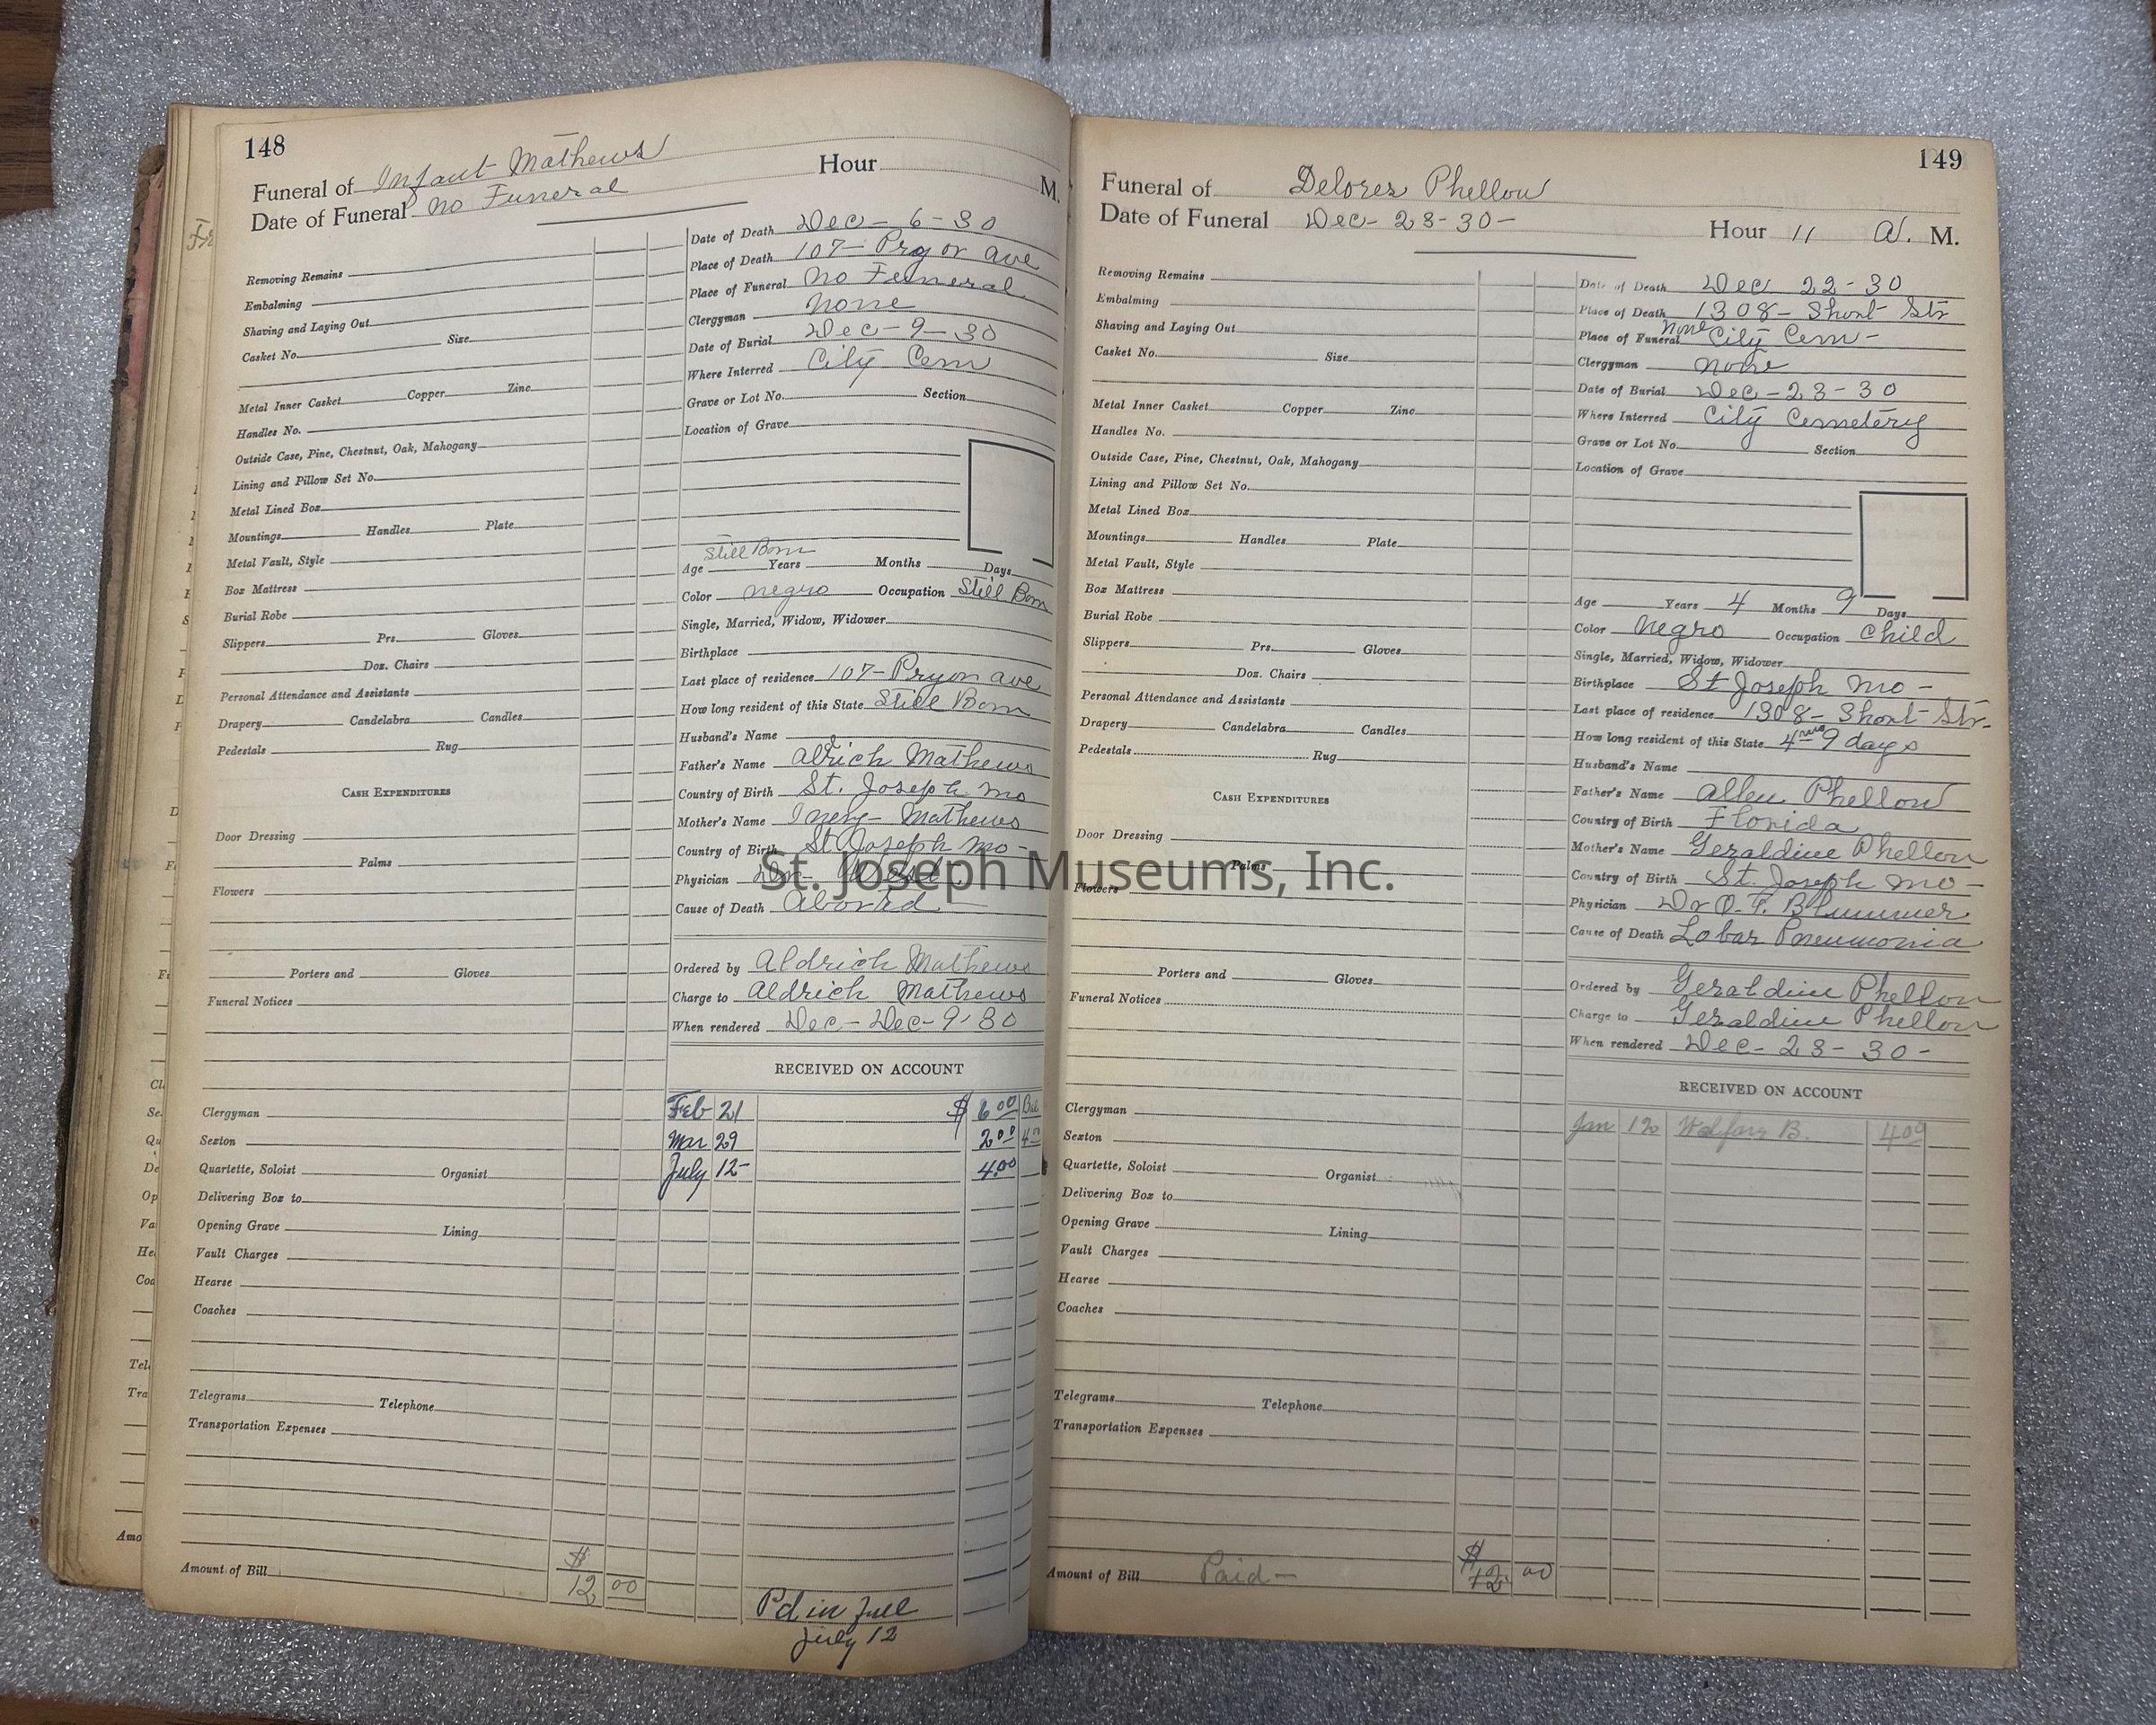 148
Funeral of Infant Mathews Hour M.
Date of Funeral No Funeral
Removing Remains
Embalming
Shaving and Laying Out
Casket No. Size
Metal Inner Casket Copper Zinc
Handles No.
Outside Case, Pine, Chestnut, Oak, Mahogany
Lining and Pillow Set No.
Metal Lined Box
Mountings Handles Plate
Metal Vault, Style
Box Mattress
Burial Robe
Slippers Prs. Gloves
Doz. Chairs
Personal Attendance and Assistants
Drapery Candelabra Candles
Pedestals Rug
CASH EXPENDITURES
Door Dressing
Palms
Flowers
Porters and Gloves
Funeral Notices
Clergyman
Sexton
Quartette, Soloist Organist
Delivering Box to
Opening Grave Lining
Vault Charges
Hearse
Coaches
Telegrams Telephone
Transportation Expenses
Amount of Bill $ 12 00
Date of Death Dec - 6 - 30
Place of Death 107 - Pryor Ave
Place of Funeral No Funeral
Clergyman None
Date of Burial Dec - 9 - 30
Where Interred City Cem
Grave or Lot No. Section
Location of Grave
Still Born
Age Years Months Days
Color negro Occupation Still Born
Single, Married, Widow, Widower
Birthplace
Last place of residence 107 - Pryor Ave
How long resident of this State Still Born
Husband's Name
Father's Name Alrich Mathews
Country of Birth St. Joseph Mo
Mother's Name Mathews
Country of Birth St Joseph Mo -
Physician
Cause of Death
Ordered by Aldrich Mathews
Charge to Aldrich Mathews
When rendered Dec - Dec - 9 - 30
RECEIVED ON ACCOUNT
Feb 21 $ 6 00 Bal
Mar 29 2 00 4 00
July 12 - 4.00
Pd in full
July 12
149
Funeral of Delores Phellow
Date of Funeral Dec - 23 - 30 - Hour 11 A. M.
Removing Remains
Embalming
Shaving and Laying Out
Casket No. Size
Metal Inner Casket Copper Zinc
Handles No.
Outside Case, Pine, Chestnut, Oak, Mahogany
Lining and Pillow Set No.
Metal Lined Box
Mountings Handles Plate
Metal Vault, Style
Box Mattress
Burial Robe
Slippers Prs. Gloves
Doz. Chairs
Personal Attendance and Assistants
Drapery Candelabra Candles
Pedestals Rug
CASH EXPENDITURES
Door Dressing
Palms
Flowers
Porters and Gloves
Funeral Notices
Clergyman
Sexton
Quartette, Soloist Organist
Delivering Box to
Opening Grave Lining
Vault Charges
Hearse
Coaches
Telegrams Telephone
Transportation Expenses
Amount of Bill Paid - $ 12 00
Date of Death Dec 22 - 30
Place of Death 1308 - Short Str
Place of Funeral None City Cem -
Clergyman None
Date of Burial Dec - 23 - 30
Where Interred City Cemetery
Grave or Lot No. Section
Location of Grave
Age Years 4 Months 9 Days
Color negro Occupation Child
Single, Married, Widow, Widower
Birthplace St Joseph Mo -
Last place of residence 1308 - Short Str.
How long resident of this State 4 mos 9 days
Husband's Name
Father's Name Allen Phellow
Country of Birth Florida
Mother's Name Geraldine Phellow
Country of Birth St. Joseph Mo -
Physician Dr O. F. Blummer
Cause of Death Lobar Pneumonia
Ordered by Geraldine Phellow
Charge to Geraldine Phellow
When rendered Dec - 23 - 30 -
RECEIVED ON ACCOUNT
Jan 12 Welfare B. 4 00
St. Joseph Museums, Inc.